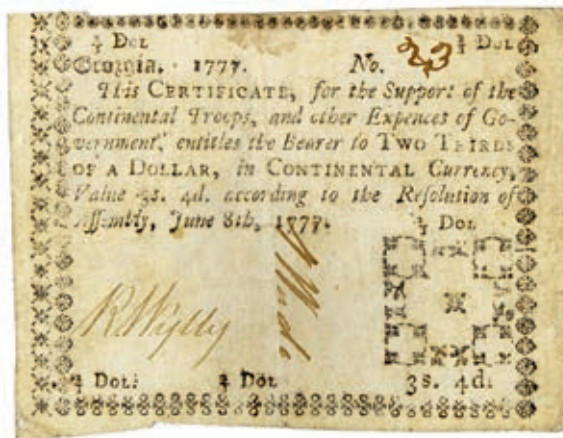 ⅔ Dol. ⅔ Dol.
Georgia. 1777. No. 23
This CERTIFICATE, for the Support of the
Continental Troops, and other Expences of Go-
vernment, entitles the Bearer to TWO THIRDS
OF A DOLLAR, in CONTINENTAL Currency,
Value 3s. 4d. according to the Resolution of
Assembly, June 8th, 1777.
⅔ Dol.
R Wylly
⅔ Dol. ⅔ Dol 3s. 4d.